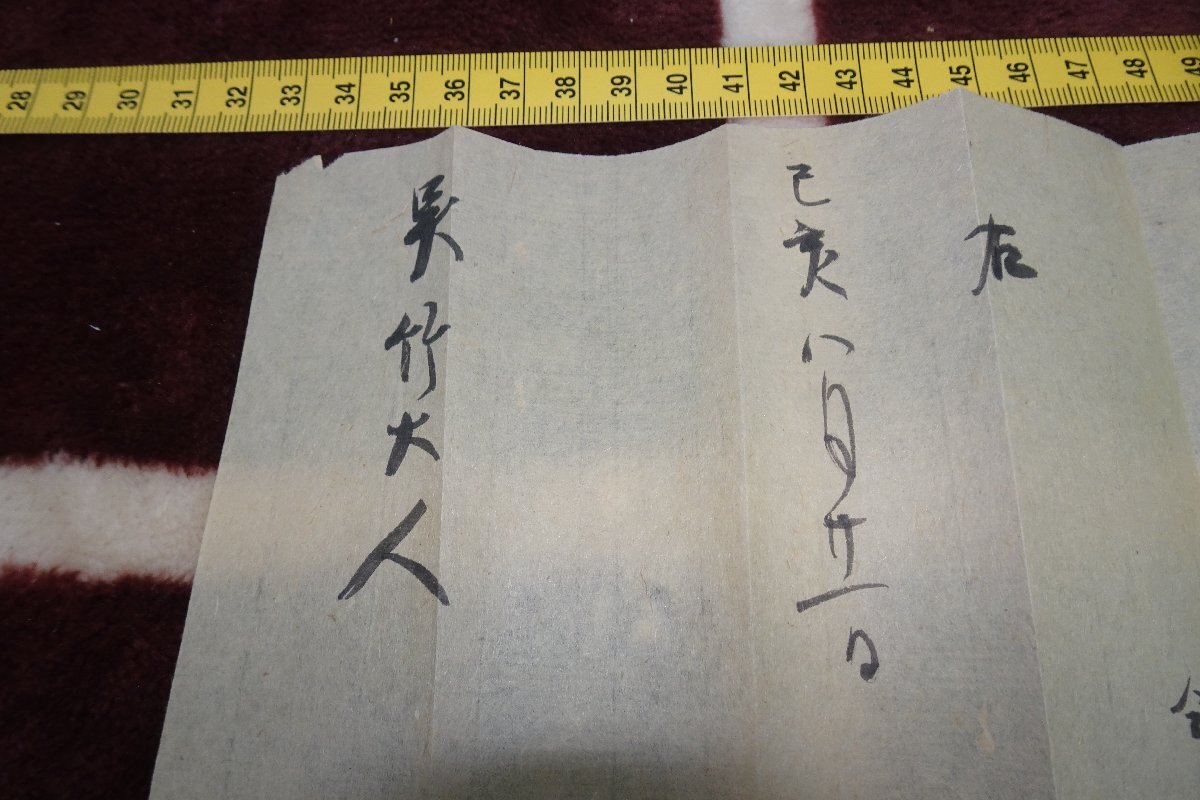 28 29 30 31 32 33 34 35 36 37 38 39 40 41 42 43 44 45 46 47 48 49
右
己亥八月廿一日
呉竹大人